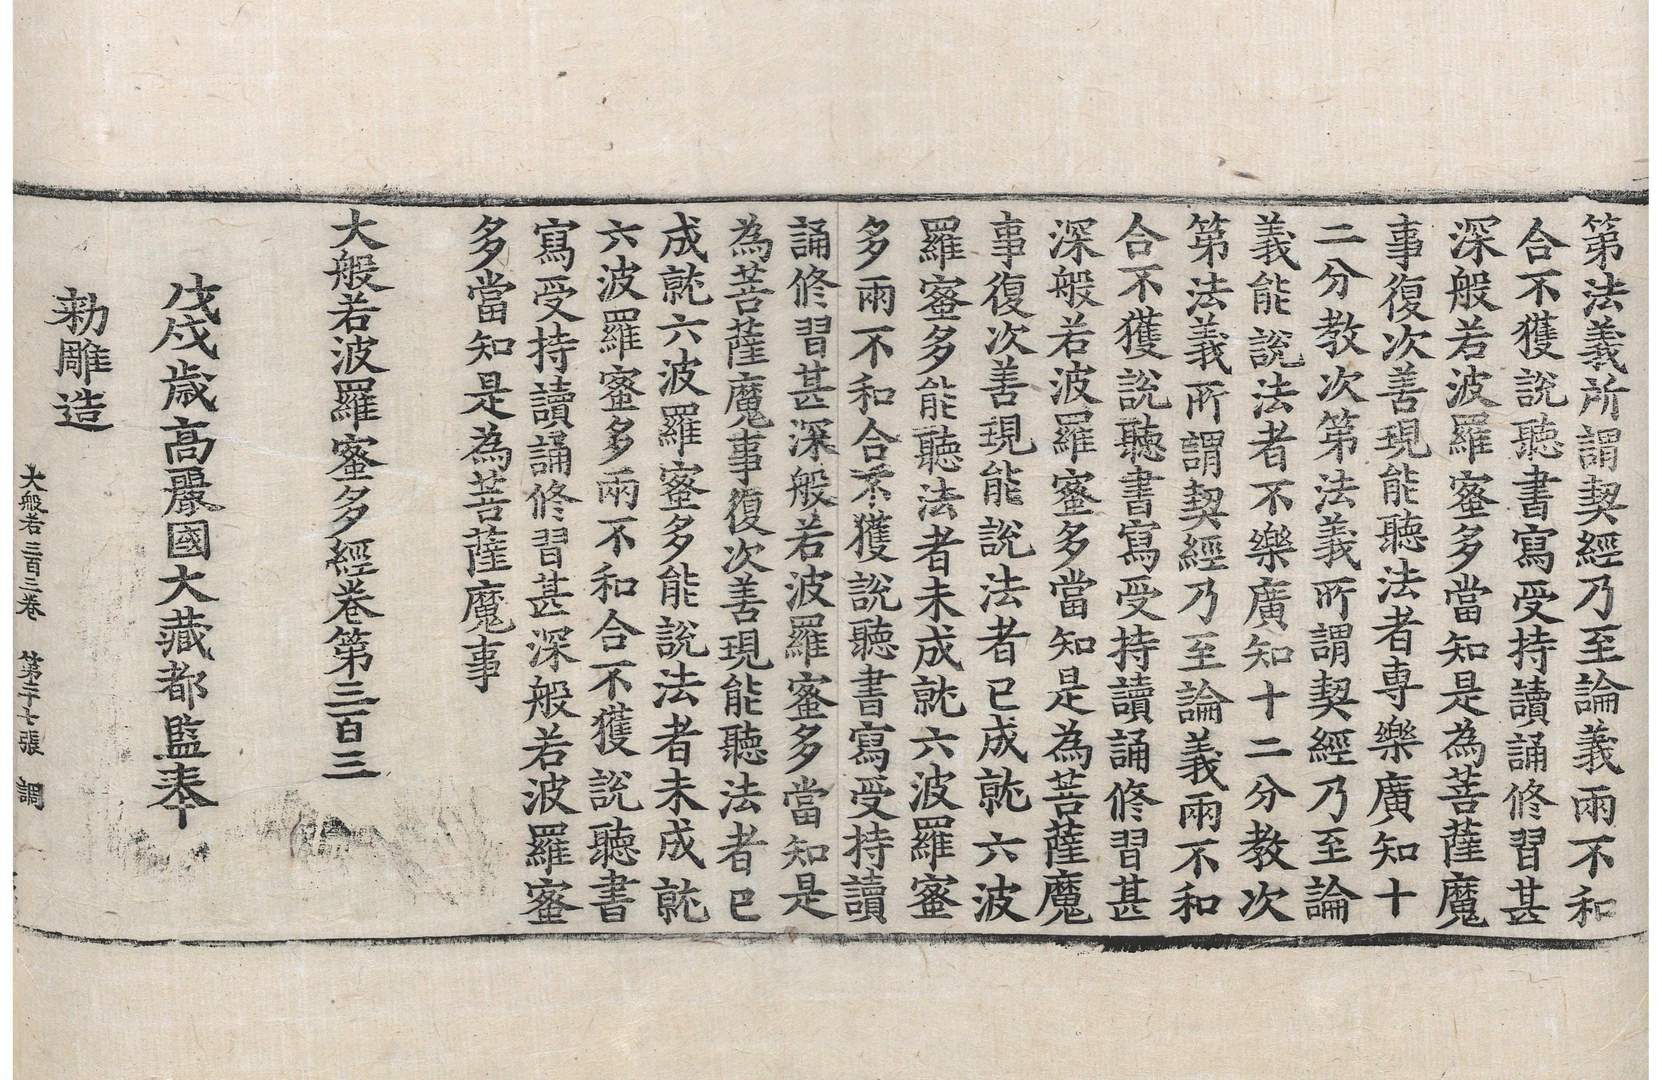 第法義所謂契經乃至論義兩不和
合不獲說聽書寫受持讀誦修習甚
深般若波羅蜜多當知是為菩薩魔
事復次善現能聽法者專樂廣知十
二分教次第法義所謂契經乃至論
義能說法者不樂廣知十二分教次
第法義所謂契經乃至論義兩不和
合不獲說聽書寫受持讀誦修習甚
深般若波羅蜜多當知是為菩薩魔
事復次善現能說法者已成就六波
羅蜜多能聽法者未成就六波羅蜜
多兩不和合不獲說聽書寫受持讀
誦修習甚深般若波羅蜜多當知是
為菩薩魔事復次善現能聽法者已
成就六波羅蜜多能說法者未成就
六波羅蜜多兩不和合不獲說聽書
寫受持讀誦修習甚深般若波羅蜜
多當知是為菩薩魔事
大般若波羅蜜多經卷第三百三
戊戌歲高麗國大藏都監奉
勅雕造
大般若三百三卷 第二十七張 調